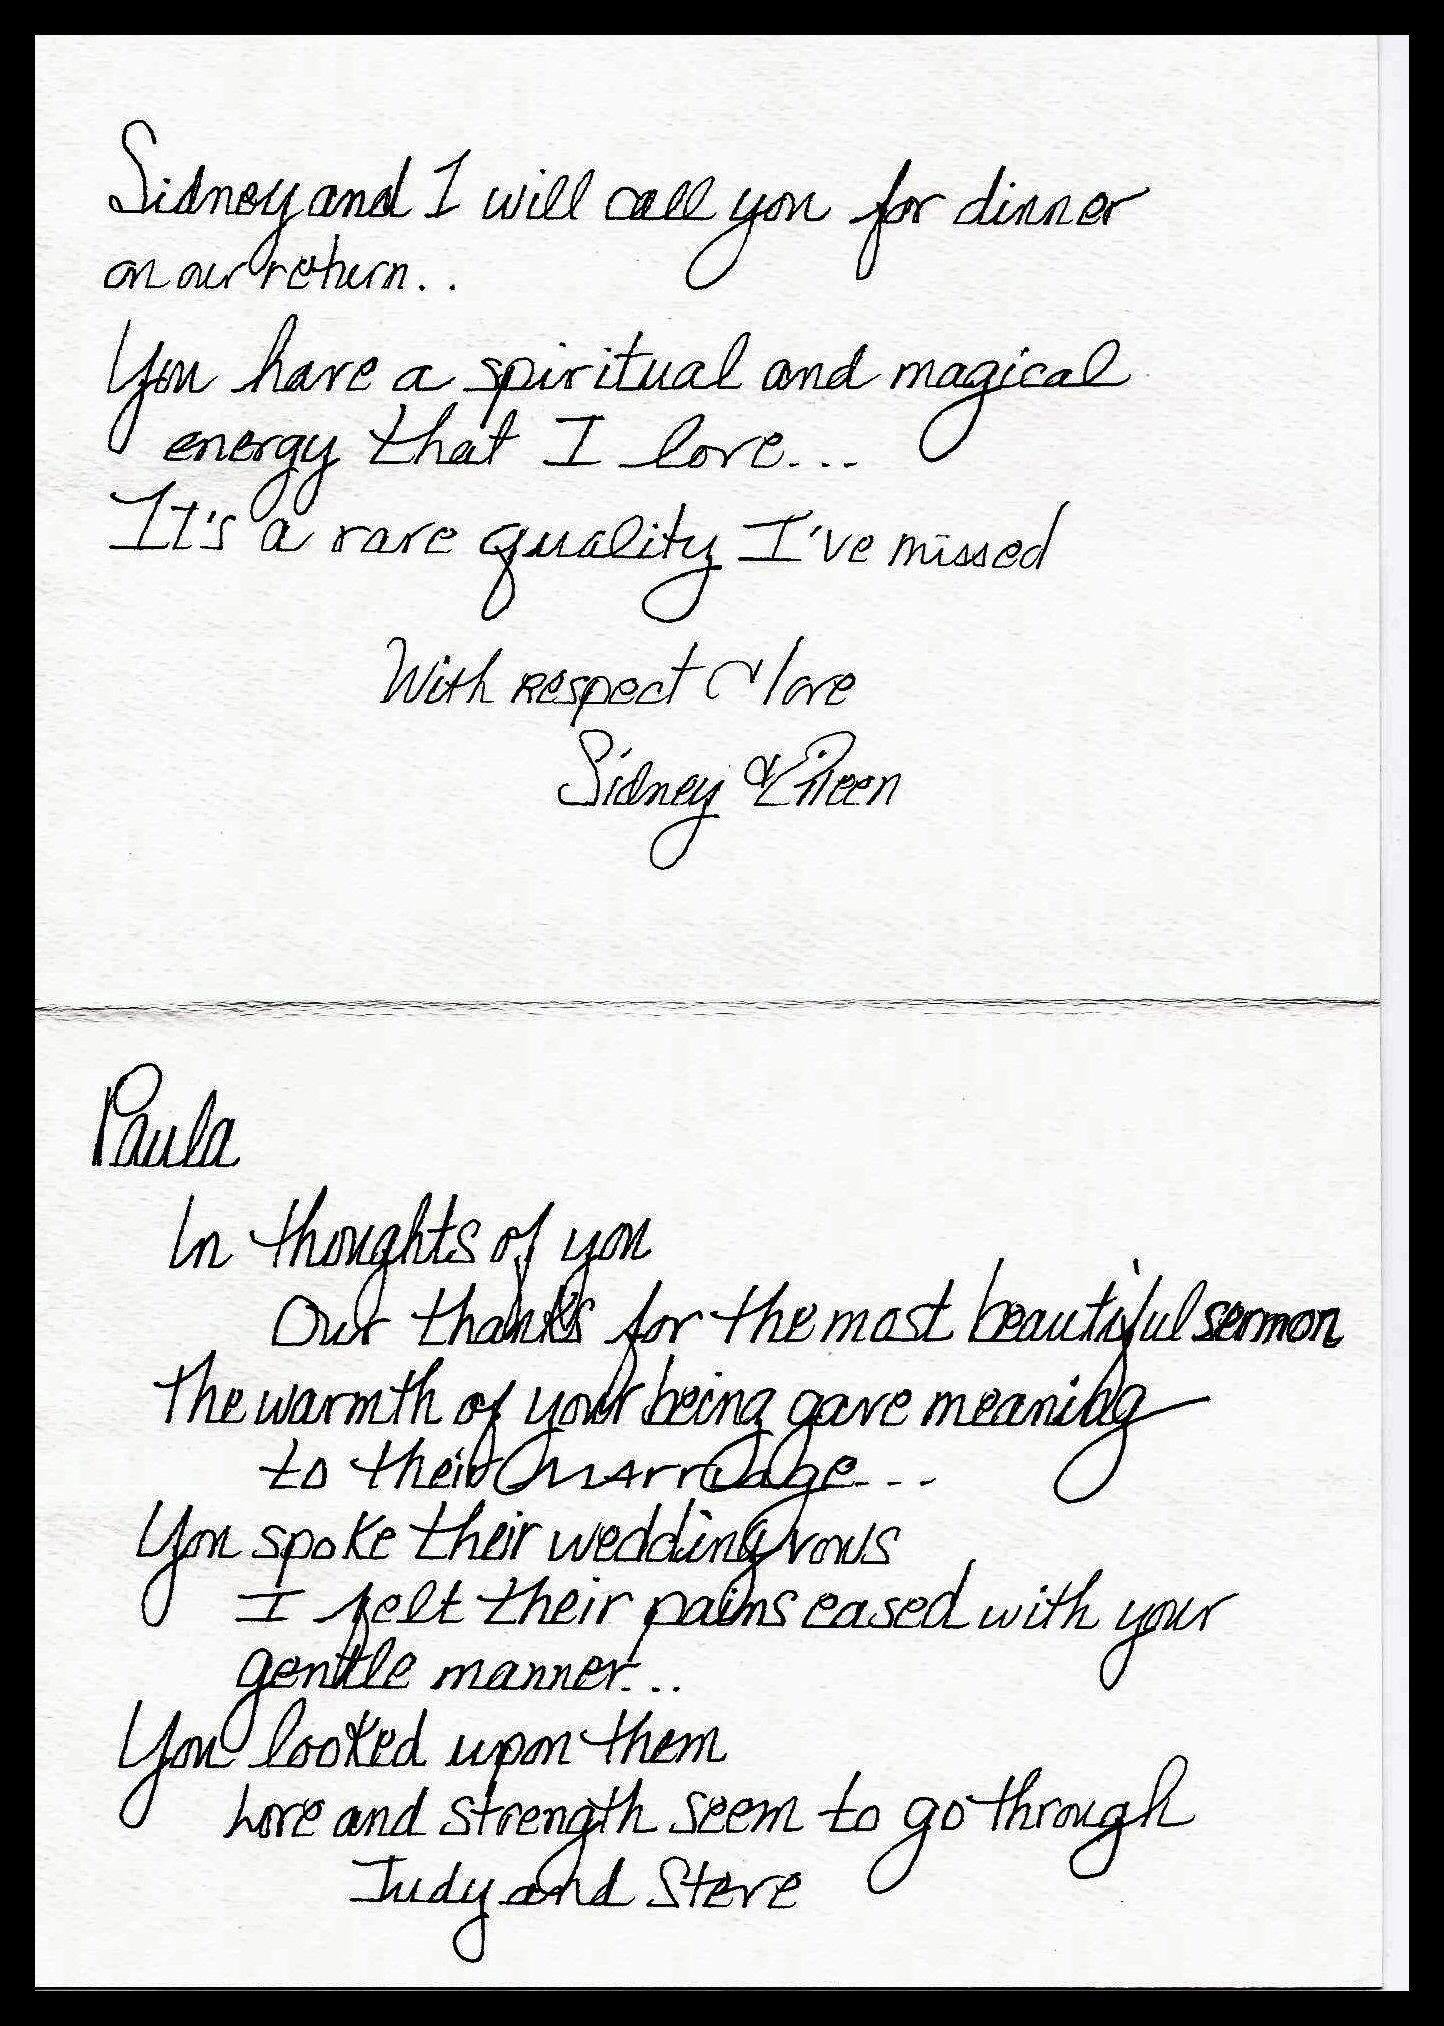 Sidney and I will call you for dinner
on our return..
You have a spiritual and magical
energy that I love...
It's a rare quality I've missed
With respect & love
Sidney & Eileen
Paula
In thoughts of you
Our thanks for the most beautiful sermon
The warmth of your being gave meaning
to their marriage...
You spoke their wedding vows
I felt their pains eased with your
gentle manner...
You looked upon them
Love and strength seem to go through
Judy and Steve